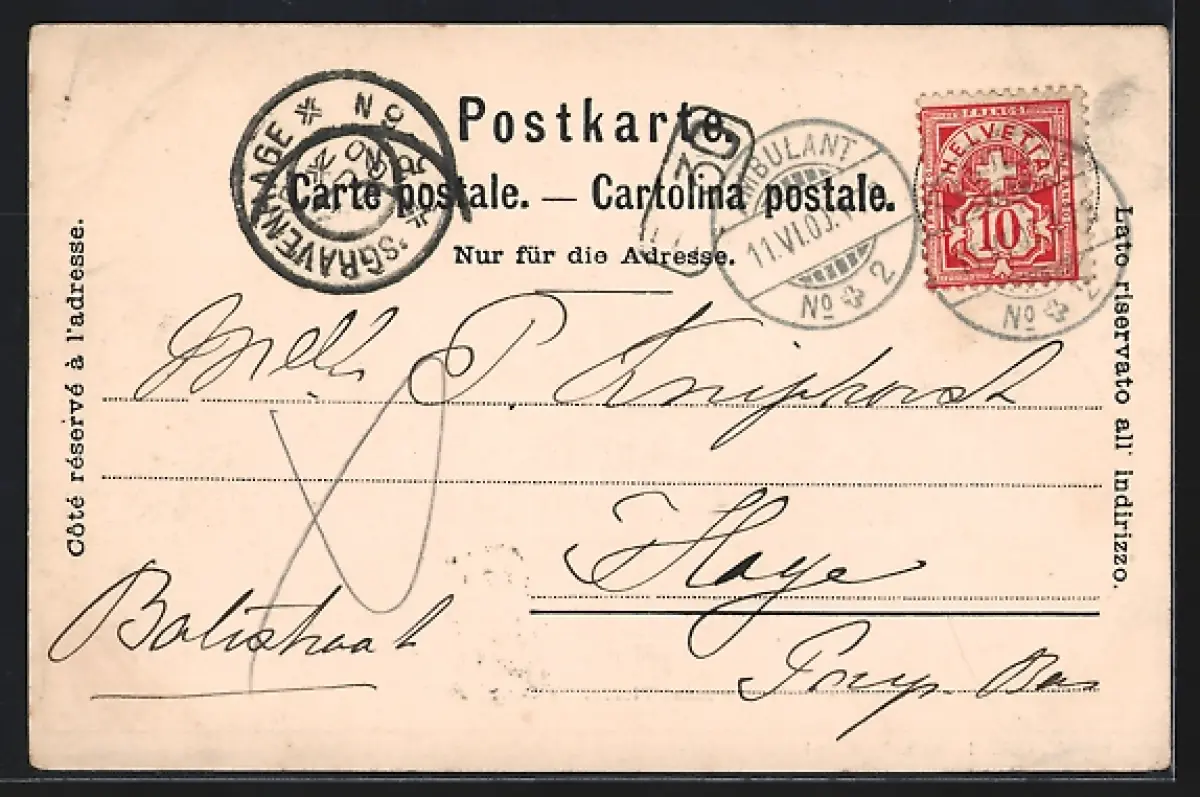 Postkarte.
Carte postale. — Cartolina postale.
Nur für die Adresse.
Côté réservé à l'adresse.
Lato riservato all' indirizzo.
'SGRAVENHAGE
AMBULANT
11.VI.0
No 2
No 2
FRANCO
HELVETIA
10
Melle P. Kniphorst
Haye
Balistraat
Pays Bas